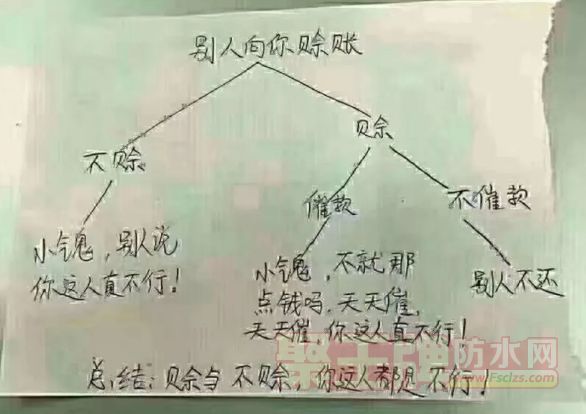 别人向你赊账
不赊
赊
催款
不催款
小气鬼，别人说
你这人真不行！
小气鬼，不就那
点钱吗，天天催，
天天催，你这人真不行！
别人不还
总结：赊与不赊，你这人都是不行！
防水网
www.Fsclzs.com